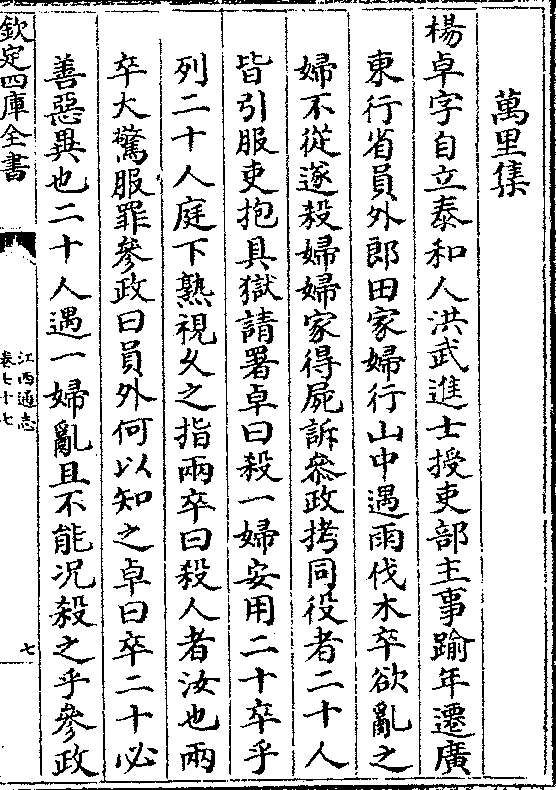 萬里集
楊卓字自立泰和人洪武進士授吏部主事踰年遷廣
東行省員外郎田家婦行山中遇雨伐木卒欲亂之
婦不從遂殺婦婦家得屍訴叅政拷同役者二十人
皆引服吏抱具獄請署卓曰殺一婦安用二十卒乎
列二十人庭下熟視乆之指兩卒曰殺人者汝也兩
卒大驚服罪參政曰員外何以知之卓曰卒二十必
善惡異也二十人遇一婦亂且不能况殺之乎參政
欽定四庫全書
江西通志
卷七十七
七